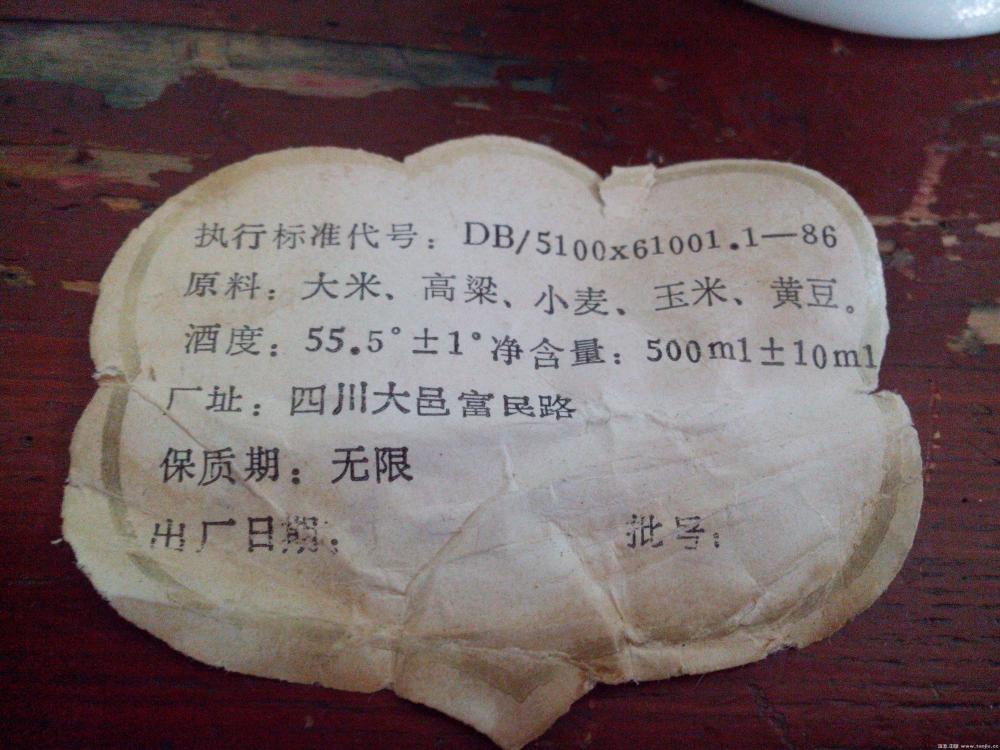 执行标准代号：DB/5100x61001.1—86
原料：大米、高粱、小麦、玉米、黄豆。
酒度：55.5°±1°净含量：500ml±10ml
厂址：四川大邑富民路
保质期：无限
出厂日期： 批号：